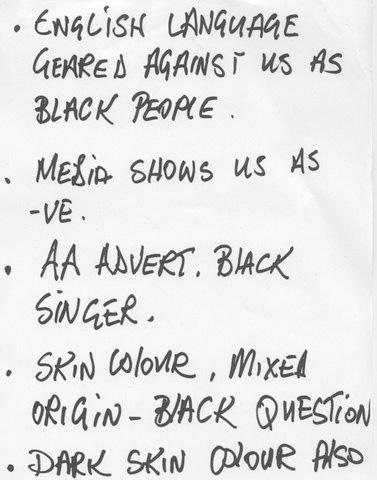 • ENGLISH LANGUAGE
GEARED AGAINST US AS
BLACK PEOPLE.
• MEDIA SHOWS US AS
-VE.
• AA ADVERT. BLACK
SINGER.
• SKIN COLOUR, MIXED
ORIGIN - BLACK QUESTION
• DARK SKIN COLOUR ALSO